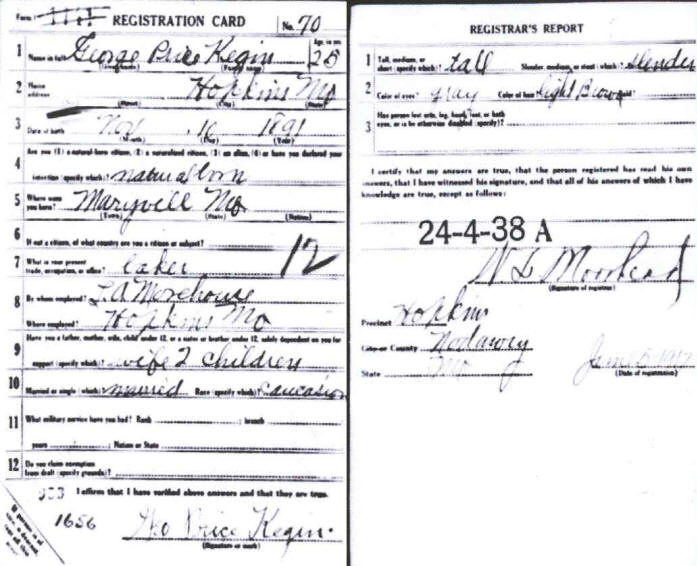 Form 1111 REGISTRATION CARD No. 70
1 Name in full George Price Kegin Age, in yrs. 25
(Given name) (Family name)
2 Home address Hopkins Mo
(Street) (City) (State)
3 Date of birth Nov. 16 1891
(Month) (Day) (Year)
4 Are you (1) a natural-born citizen, (2) a naturalized citizen, (3) an alien, (4) or have you declared your
intention (specify which)? natural born
5 Where were you born? Maryvill Mo
(Town) (State) (Nation)
6 If not a citizen, of what country are you a citizen or subject?
7 What is your present trade, occupation, or office? baker 12
8 By whom employed? L. A. Morehouse
Where employed? Hopkins Mo
9 Have you a father, mother, wife, child under 12, or a sister or brother under 12, solely dependent on you for
support (specify which)? wife 2 children
10 Married or single (which)? married Race (specify which)? Caucasion
11 What military service have you had? Rank ; branch
years ; Nation or State
12 Do you claim exemption from draft (specify grounds)?
I affirm that I have verified above answers and that they are true.
1656
Geo Price Kegin.
(Signature or mark)
If person is of
REGISTRAR'S REPORT
1 Tall, medium, or short (specify which)? tall Slender, medium, or stout (which)? slender
2 Color of eyes? gray Color of hair? light Brown Bald?
3 Has person lost arm, leg, hand, foot, or both eyes, or is he otherwise disabled (specify)?
I certify that my answers are true, that the person registered has read his own
answers, that I have witnessed his signature, and that all of his answers of which I have
knowledge are true, except as follows:
24-4-38 A
(Signature of registrar)
Precinct Hopkins
City or County Nodawey
State Mo
June 5 1917
(Date of registration)